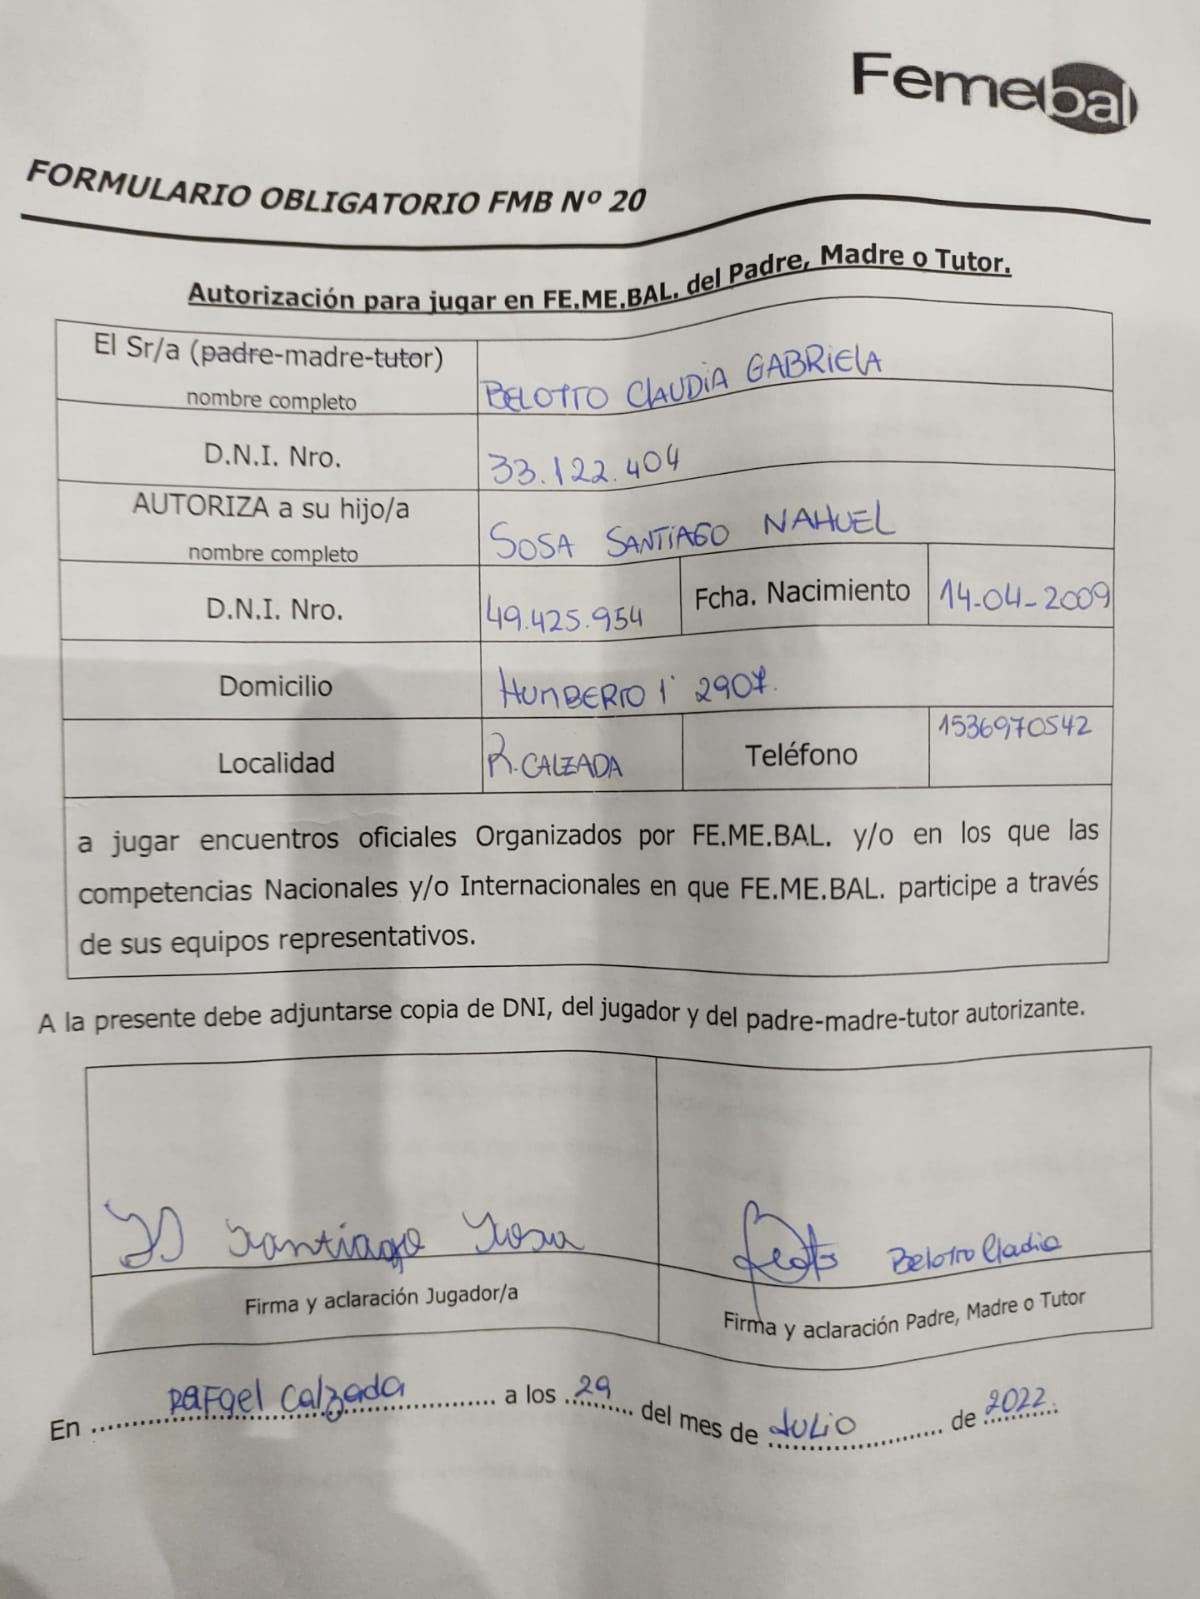 Femebal
FORMULARIO OBLIGATORIO FMB Nº 20
Autorización para jugar en FE.ME.BAL. del Padre, Madre o Tutor.
El Sr/a (padre-madre-tutor)
nombre completo
BELOTTO CLAUDIA GABRIELA
D.N.I. Nro.
33.122.404
AUTORIZA a su hijo/a
nombre completo
SOSA SANTIAGO NAHUEL
D.N.I. Nro.
49.425.954
Fcha. Nacimiento
14-04-2009
Domicilio
HUMBERTO 1° 2907.
Localidad
R. CALZADA
Teléfono
1536970542
a jugar encuentros oficiales Organizados por FE.ME.BAL. y/o en los que las
competencias Nacionales y/o Internacionales en que FE.ME.BAL. participe a través
de sus equipos representativos.
A la presente debe adjuntarse copia de DNI, del jugador y del padre-madre-tutor autorizante.
Santiago Sosa
Belotto Cladia
Firma y aclaración Jugador/a
Firma y aclaración Padre, Madre o Tutor
En Rafael Calzada a los 29 del mes de Julio de 2022.